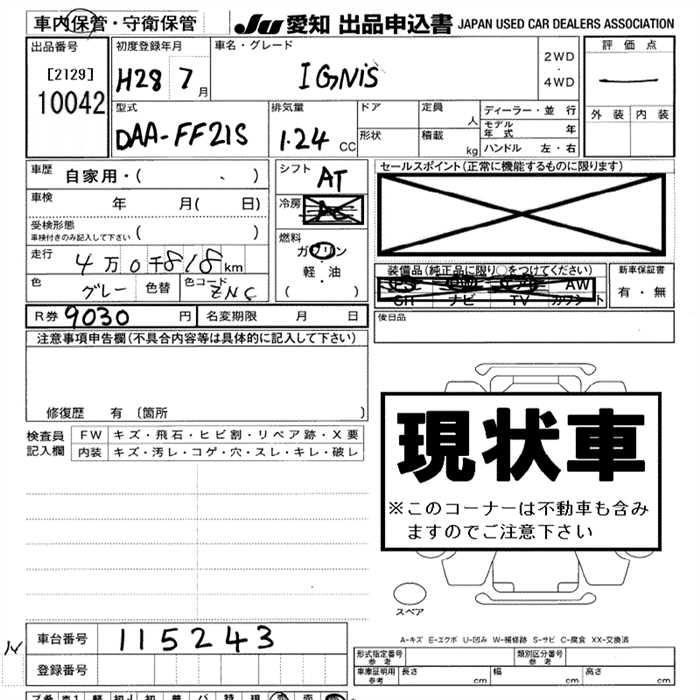 車内保管・守衛保管 JU 愛知 出品申込書 JAPAN USED CAR DEALERS ASSOCIATION
出品番号 初度登録年月 車名・グレード 評価点
[2129] H28 7月 IGNIS 2WD・4WD
10042 外装 内装
型式 排気量 ドア 定員 人 ディーラー・並行
モデル年式 年
DAA-FF21S 1.24 CC 形状 積載 kg ハンドル 左・右
車歴 自家用・( 、 ) シフト AT セールスポイント(正常に機能するものに限ります)
車検 年 月( 日) 冷房
受検形態
車検付きのみ記入して下さい ( ) 燃料
ガソリン
走行 4万0千818km 軽・油 装備品(純正品に限り○をつけてください) 新車保証書
AW 有・無
色 グレー 色替 色コード ZNC ( ) ナビ TV
R券 9030 円 名変期限 月 日 後日品
注意事項申告欄(不具合内容等は具体的に記入して下さい)
修復歴 有 〔箇所 〕
検査員 FW キズ・飛石・ヒビ割・リペア跡・X要
記入欄 内装 キズ・汚レ・コゲ・穴・スレ・キレ・破レ
現状車
※このコーナーは不動車も含み
ますのでご注意下さい
スペア
A-キズ E-エクボ U-凹み W-補修跡 S-サビ C-腐食 XX-交換済
車台番号 115243
登録番号
型式指定番号 参考 類別区分番号 参考
車庫証明用 参考 長さ cm 幅 cm 高さ cm